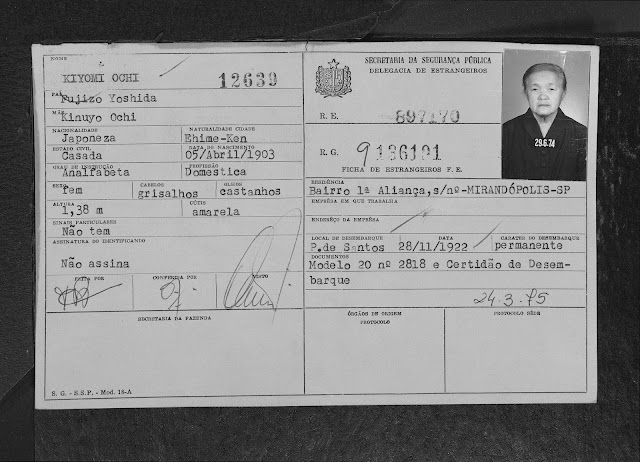 NOME
KIYOMI OCHI
12639
PAI
Fujizo Yoshida
MÃE
Kinuyo Ochi
NACIONALIDADE NATURALIDADE CIDADE
Japoneza Ehime-Ken
ESTADO CIVIL DATA DO NASCIMENTO
Casada 05/Abril/1903
GRAU DE INSTRUÇÃO PROFISSÃO
Analfabeta Domestica
SEXO CABELOS OLHOS
fem grisalhos castanhos
ALTURA CÚTIS
1,38 m amarela
SINAIS PARTICULARES
Não tem
ASSINATURA DO IDENTIFICANDO
Não assina
FEITA POR CONFERIDA POR VISTO
SECRETARIA DA FAZENDA
S. G. - S.S.P. - Mod. 16-A
SECRETARIA DA SEGURANÇA PÚBLICA
DELEGACIA DE ESTRANGEIROS
R. E. 897170
R. G. 9136101
FICHA DE ESTRANGEIROS F. E.
29.6.74
RESIDÊNCIA
Bairro 1ª Aliança,s/nº-MIRANDÓPOLIS-SP
EMPRÊSA EM QUE TRABALHA
ENDERÊÇO DA EMPRÊSA
LOCAL DE DESEMBARQUE DATA CARATER DO DESEMBARQUE
P.de Santos 28/11/1922 permanente
DOCUMENTOS
Modelo 20 nº 2818 e Certidão de Desem-
barque
24.3.75
ÓRGÃOS DE ORIGEM PROTOCOLO SÉDE
PROTOCOLO